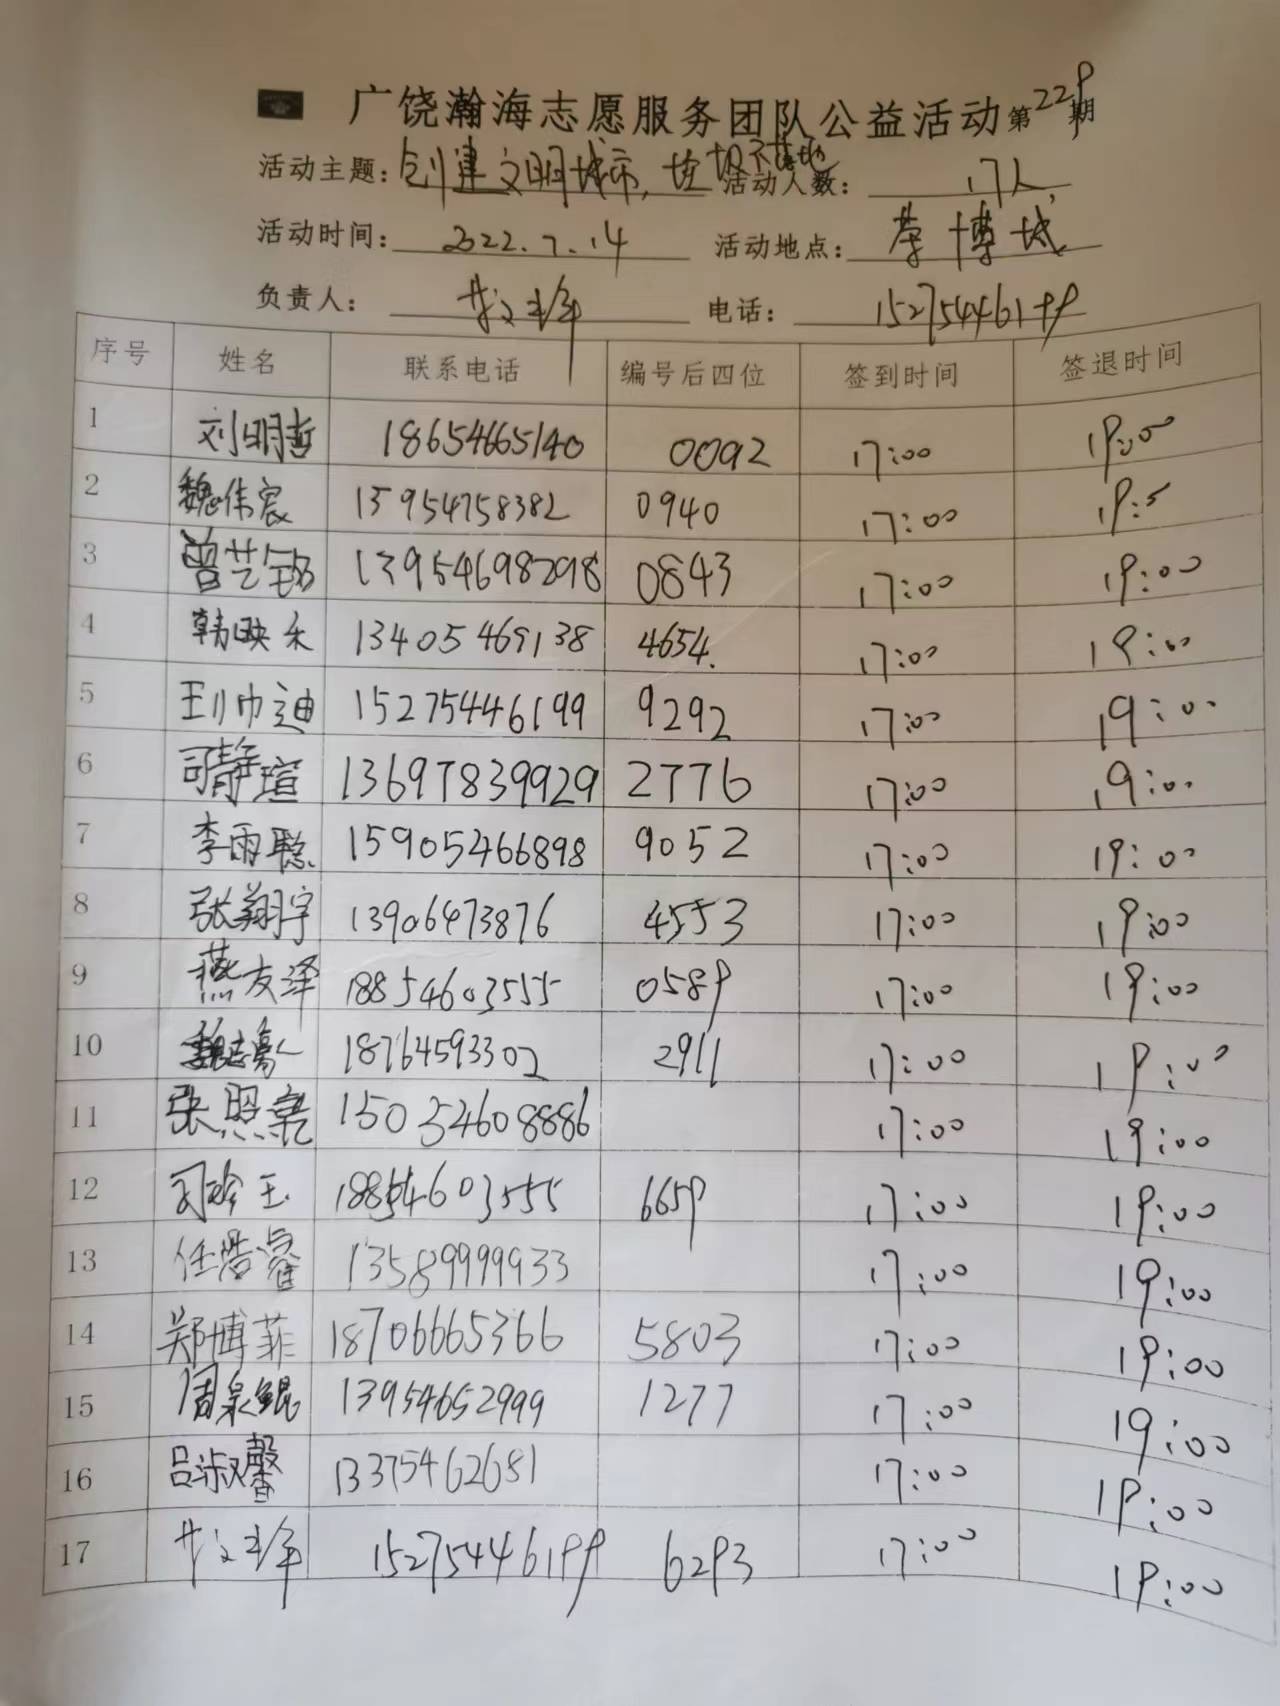 广饶瀚海志愿服务团队公益活动第229期
活动主题：创建文明城市，垃圾不落地 活动人数：17人
活动时间：2022.7.14 活动地点：荣博城
负责人： 电话：15275446199
序号 姓名 联系电话 编号后四位 签到时间 签退时间
1 刘明哲 18654665140 0092 17:00 19:00
2 魏伟宸 13954758382 0940 17:00 19:
3 曾艺铭 13954698298 0843 17:00 19:00
4 韩映禾 13405469138 4654. 17:00 19:00
5 15275446199 9292 17:00 19:00
6 司静瑄 13697839929 2776 17:00 19:00
7 李雨聪 15905466898 9052 17:00 19:00
8 张翔宇 13906473876 4553 17:00 19:00
9 燕友泽 18854603555 0589 17:00 19:00
10 18764593302 2911 17:00 19:00
11 张照 15054608886 17:00 19:00
12 18854603555 6659 17:00 19:00
13 任浩睿 13589999933 17:00 19:00
14 郑博菲 18706665366 5803 17:00 19:00
15 周泉鲲 13954652999 1277 17:00 19:00
16 吕淑馨 13375462681 17:00 19:00
17 15275446199 6293 17:00 19:00